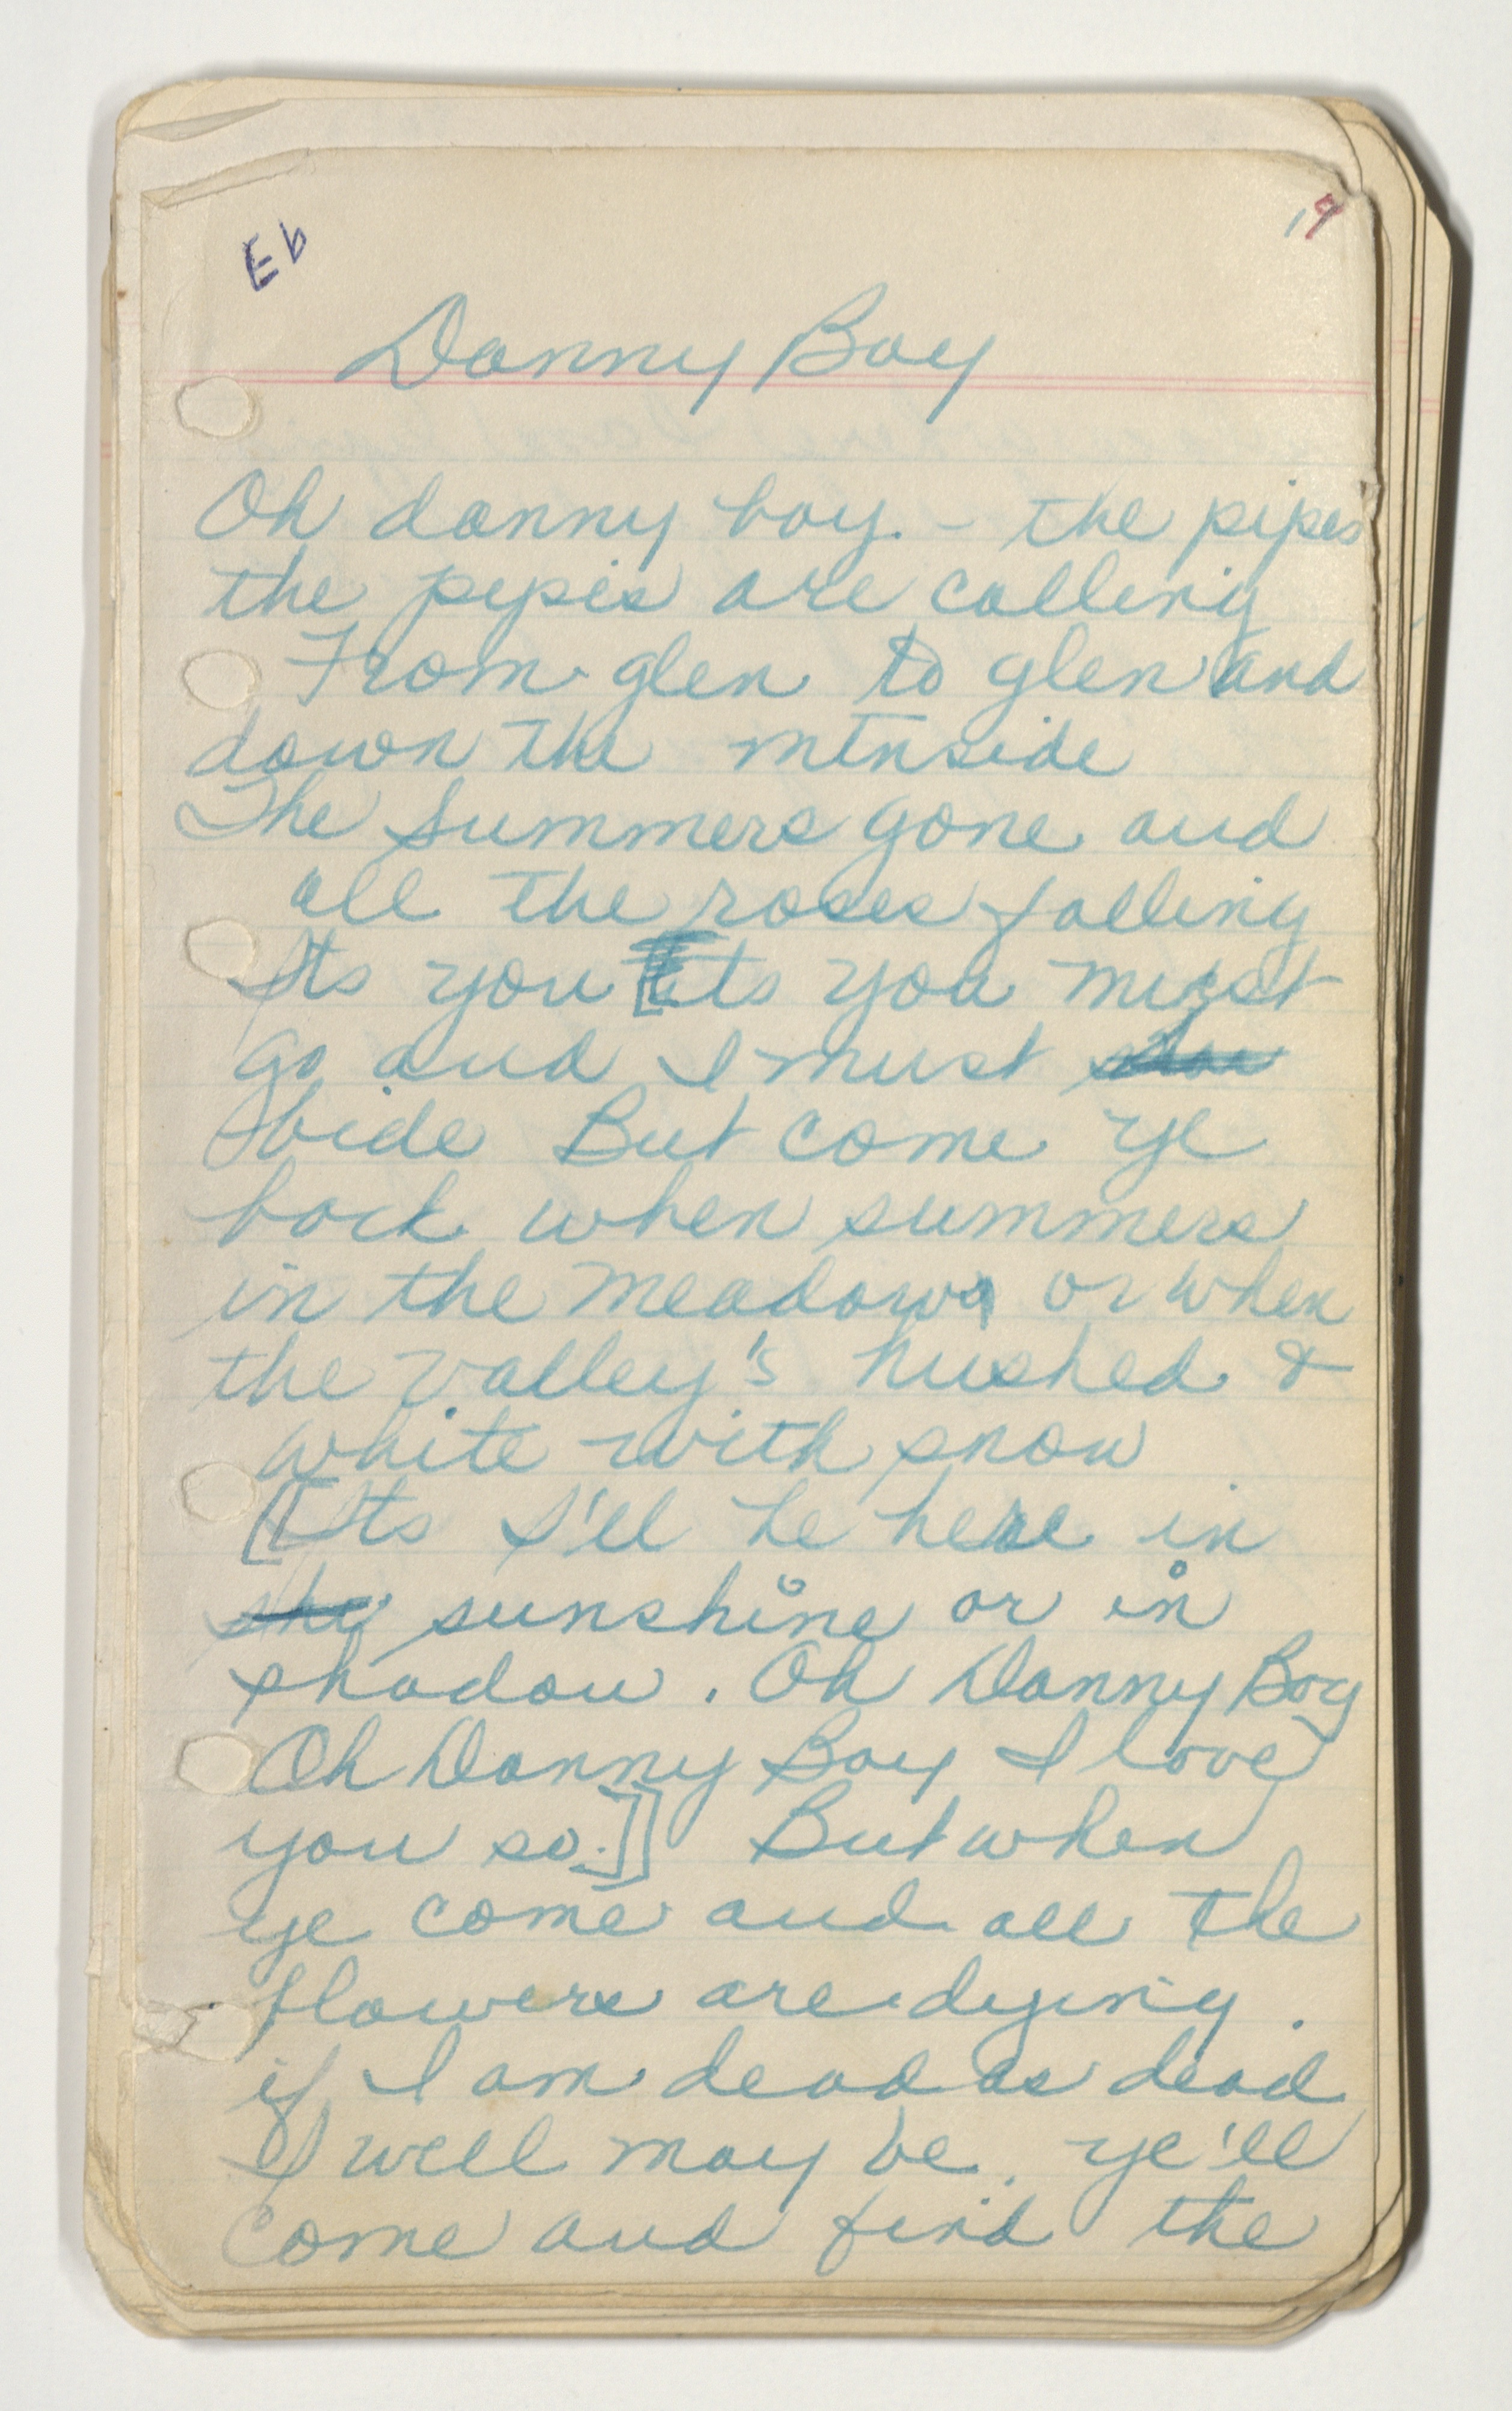 Eb
19
Danny Boy
Oh danny boy. - the pipes
the pipes are calling
From glen to glen and
down the mtnside
The summers gone and
all the roses falling
Its you [its you must
go and I must
bide But come ye
back when summers
in the meadow or when
the valley's hushed &
white with snow
[Its I'll be here in
sunshine or in
shadow. Oh Danny Boy
Oh Danny Boy I love
you so.]] But when
ye come and all the
flowers are dying.
if I am dead as dead
I well may be. ye'll
come and find the